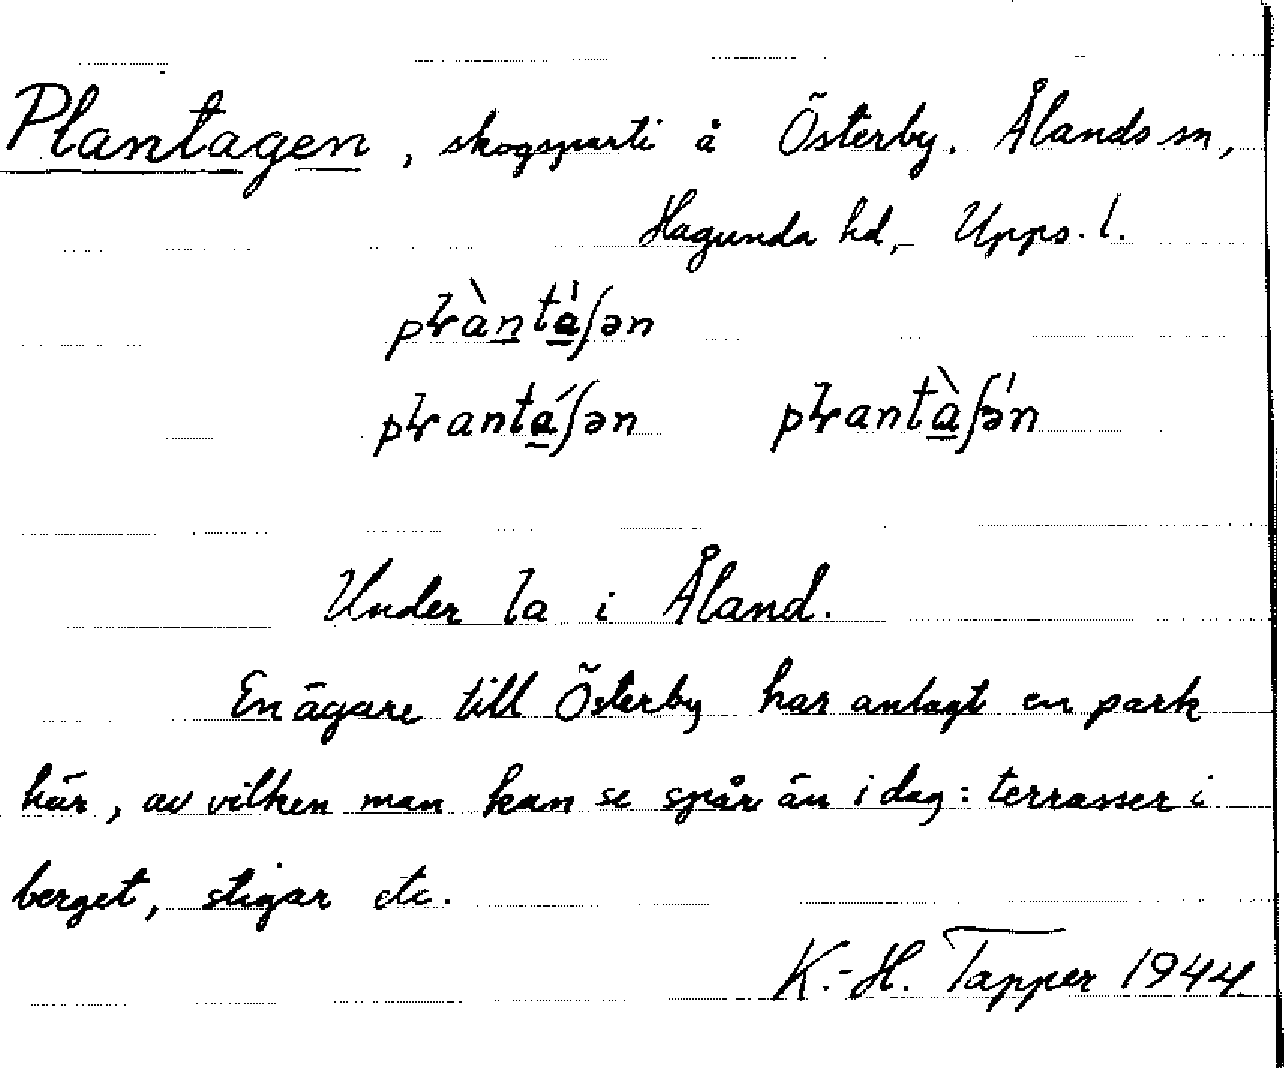 Plantagen, skogsparti å Österby. Ålands sn,
Hagunda hd, Upps. l.
Under la i Åland.
En ägare till Österby har anlagt en park
här, av vilken man kan se spår än idag: terrasser i
berget, stigar etc.
K.-H. Tapper 1944